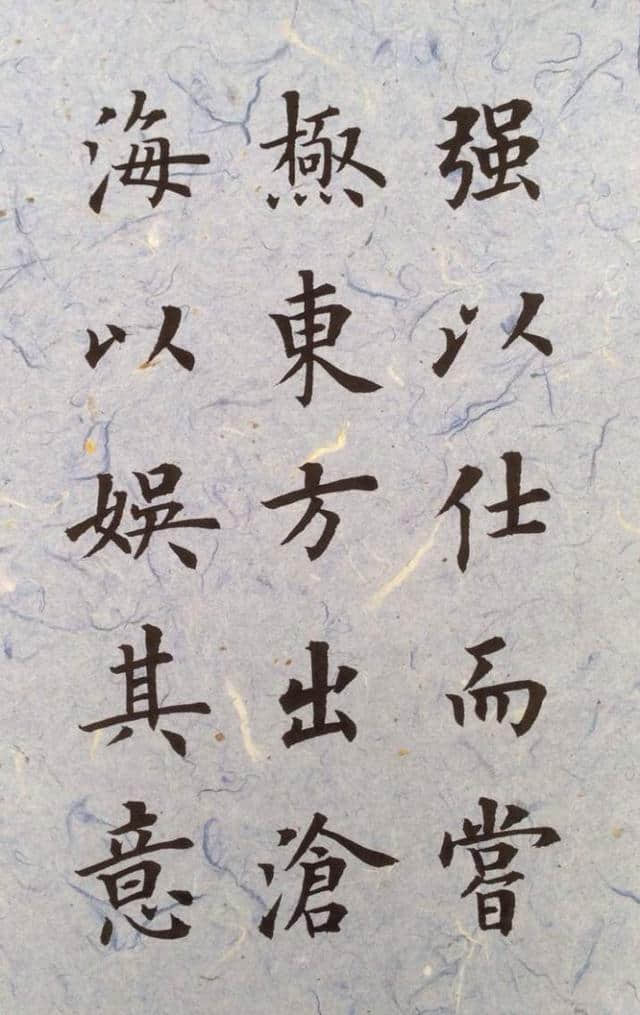 强以仕而嘗
極東方出滄
海以娱其意